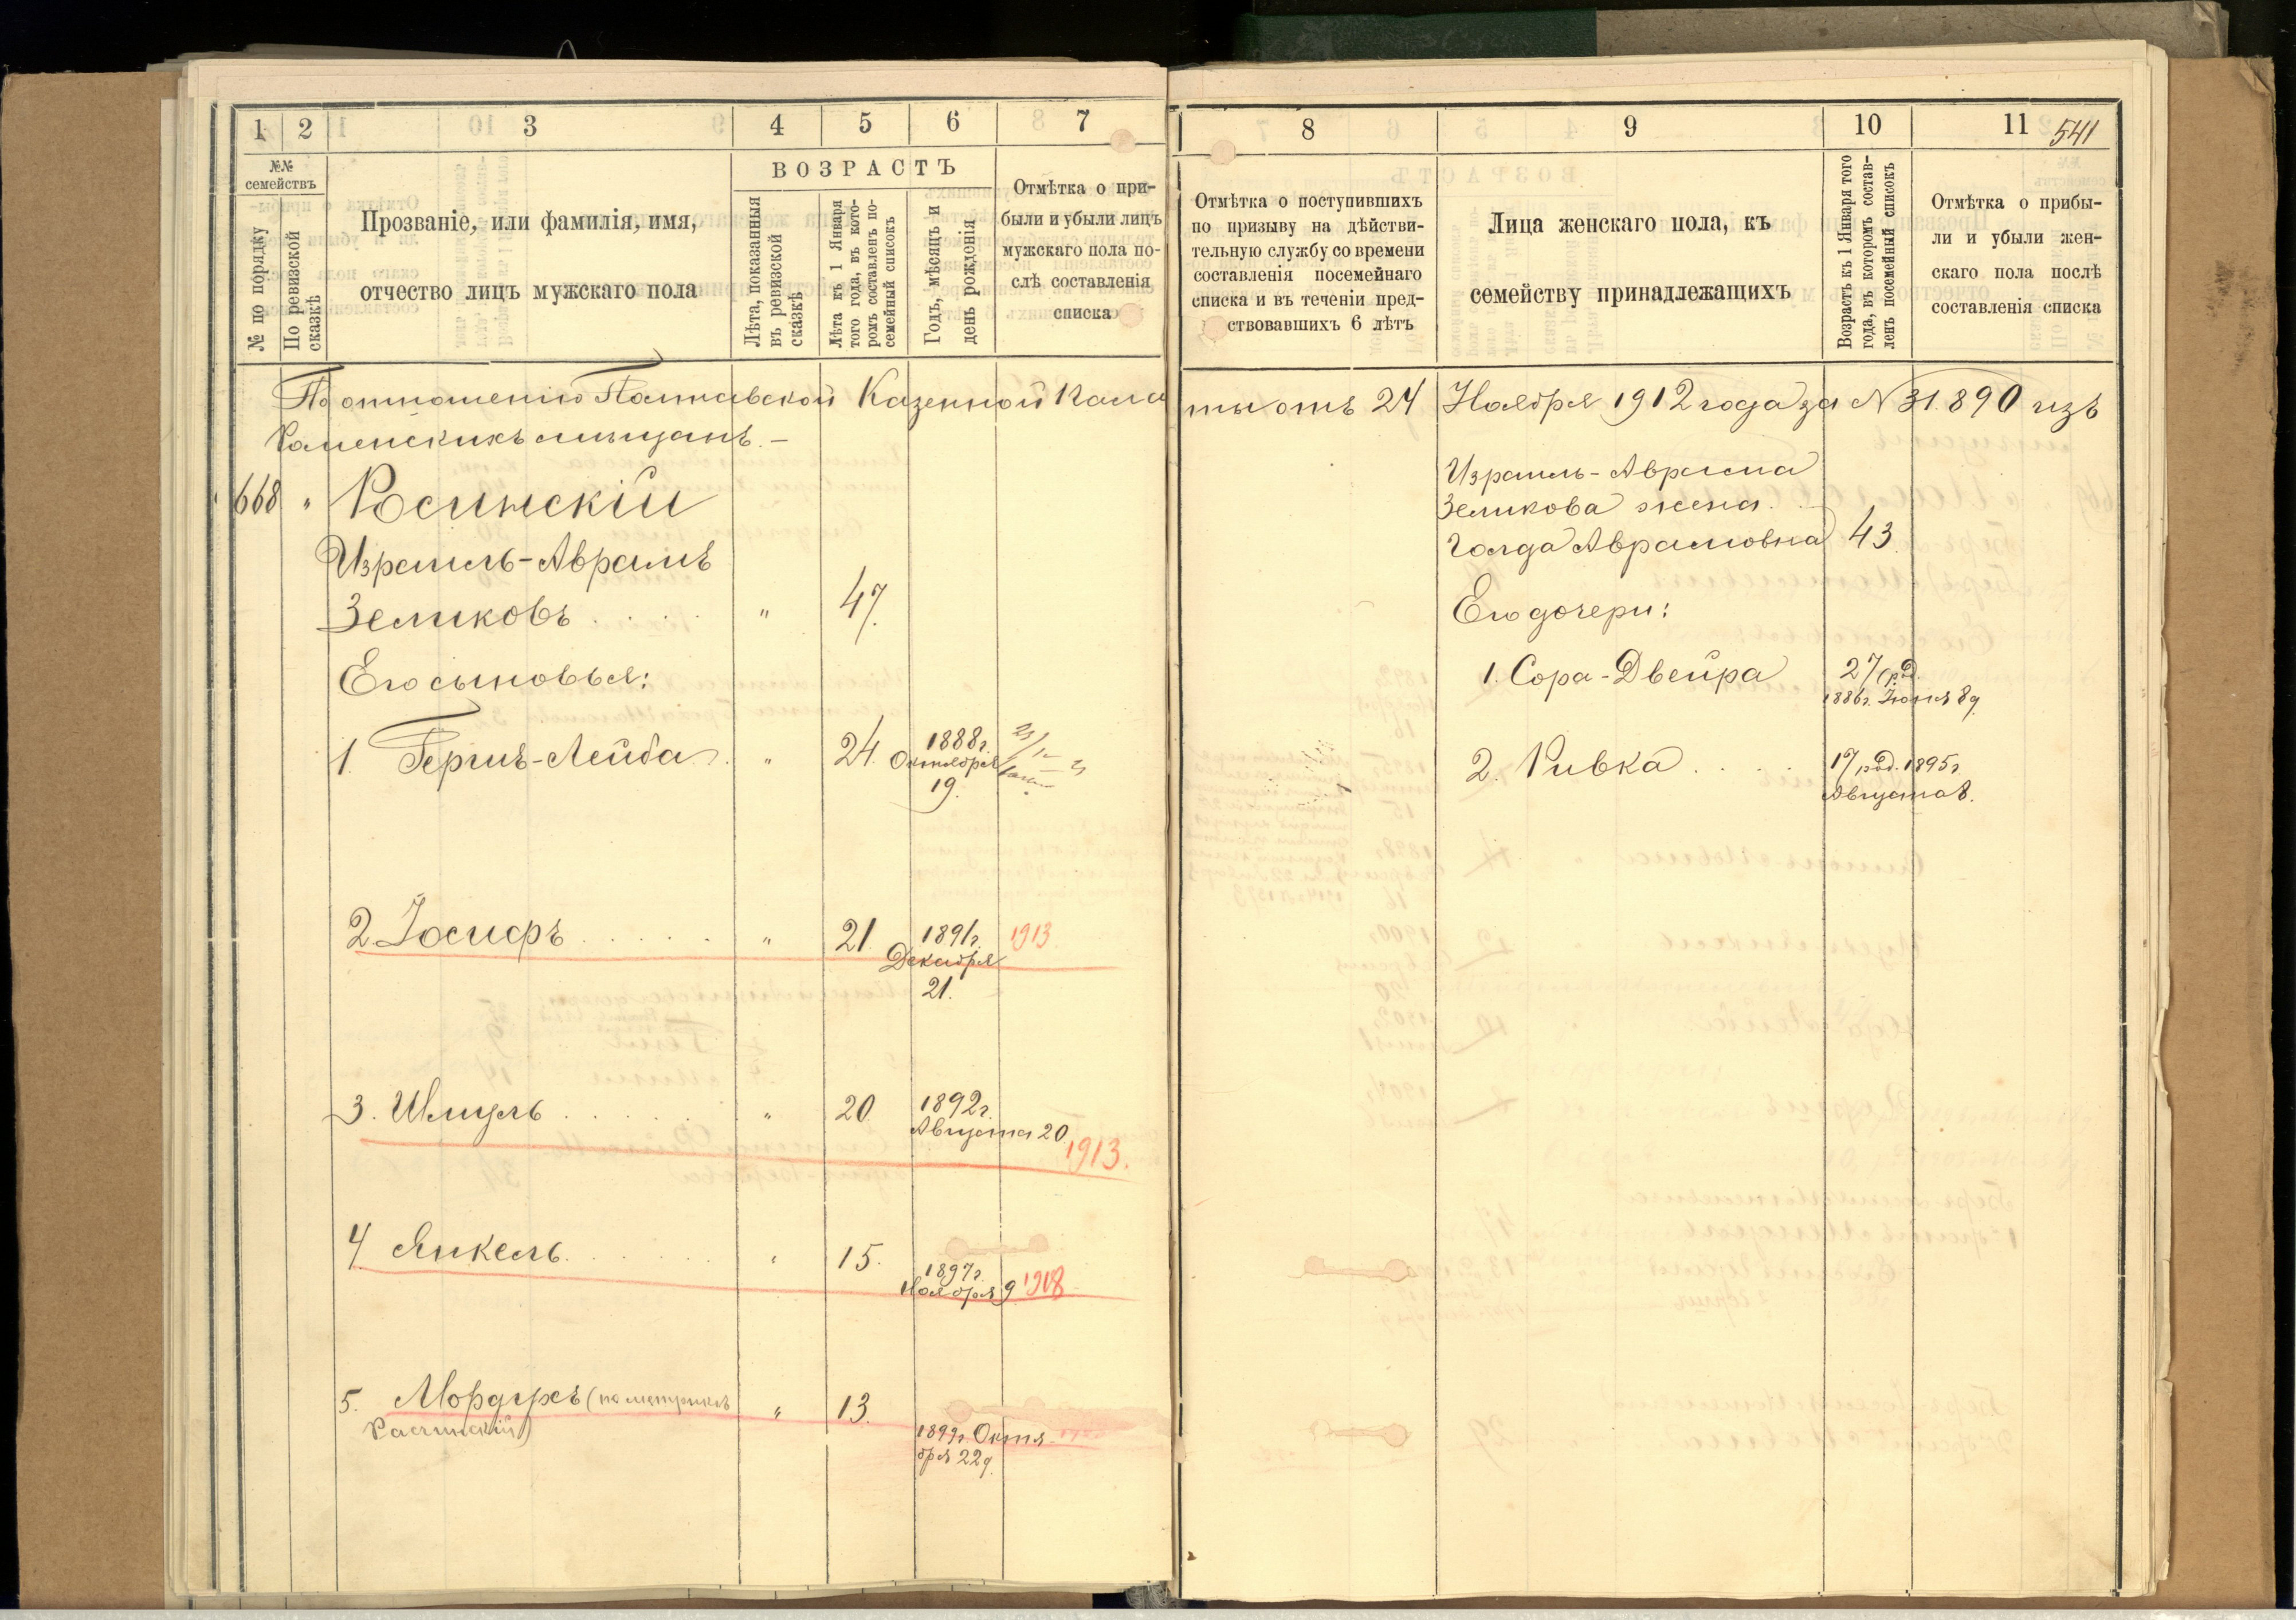 1 2 3 4 5 6 7
№№ семействъ
№ по порядку
По ревизской сказкѣ
Прозваніе, или фамилія, имя,
отчество лицъ мужскаго пола
ВОЗРАСТЪ
Лѣта, показанныя
въ ревизской
сказкѣ
Лѣта къ 1 Января
того года, въ кото-
ромъ составленъ по-
семейный списокъ
Годъ, мѣсяцъ и
день рожденія
Отмѣтка о при-
были и убыли лицъ
мужскаго пола по-
слѣ составленія
списка
8 9 10 11
541
Отмѣтка о поступившихъ
по призыву на дѣйстви-
тельную службу со времени
составленія посемейнаго
списка и въ теченіи пред-
ствовавшихъ 6 лѣтъ
Лица женскаго пола, къ
семейству принадлежащихъ
Возрастъ къ 1 Января того
года, въ которомъ состав-
ленъ посемейный списокъ
Отмѣтка о прибы-
ли и убыли жен-
скаго пола послѣ
составленія списка
По отношенію Полтавской Казенной Пала ты отъ 24 Ноября 1912 года за N 31.890 изъ
Роменскихъ мѣщанъ. —
668 " Росинскій
Израиль-Аврамъ
Зеликовъ . . . . " 47.
Его сыновья:
1. Гершъ-Лейба . " 24. 1888 г.
Октября
19.
2. Іосифъ . . . . . " 21. 1891 г. 1913
Декабря
21.
3. Шмуль . . . . . " 20. 1892 г.
Августа 20.
1913.
4 Янкель . . . . . " 15.
1897 г.
Ноября 9 1918
5. Мордухъ (по метрикѣ " 13.
Расинскій)
1899 г Октя-
бря 22 д.
Израиль-Аврама
Зеликова жена
Голда Аврамовна 43.
Его дочери:
1. Сора-Двейра 27 род.
1886 г. Іюня 8 д
2. Ривка . . . . 17 род. 1895 г.
Августа 8.